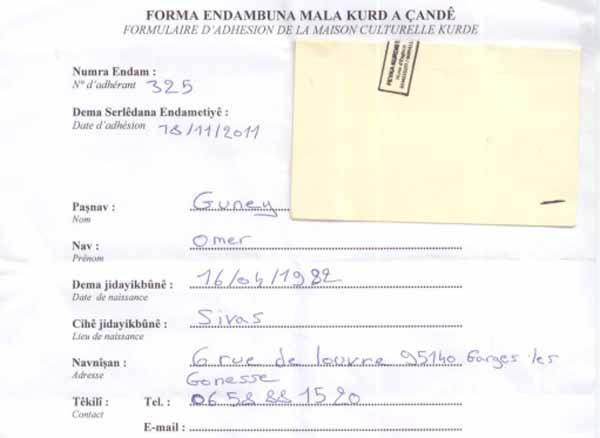 FORMA ENDAMBUNA MALA KURD A ÇANDÊ
FORMULAIRE D'ADHESION DE LA MAISON CULTURELLE KURDE
Numra Endam :
N° d'adhérant 325
Dema Serlêdana Endametiyê :
Date d'adhésion 18/11/2011
Paşnav : Guney
Nom
Nav : Omer
Prénom
Dema jidayikbûnê : 16/04/1982
Date de naissance
Cihê jidayikbûnê : Sivas
Lieu de naissance
Navnîşan : 6 rue de louvre 95140 Garges les
Adresse Gonesse
Têkilî : Tel. : 06 58 88 15 20
Contact
E-mail :